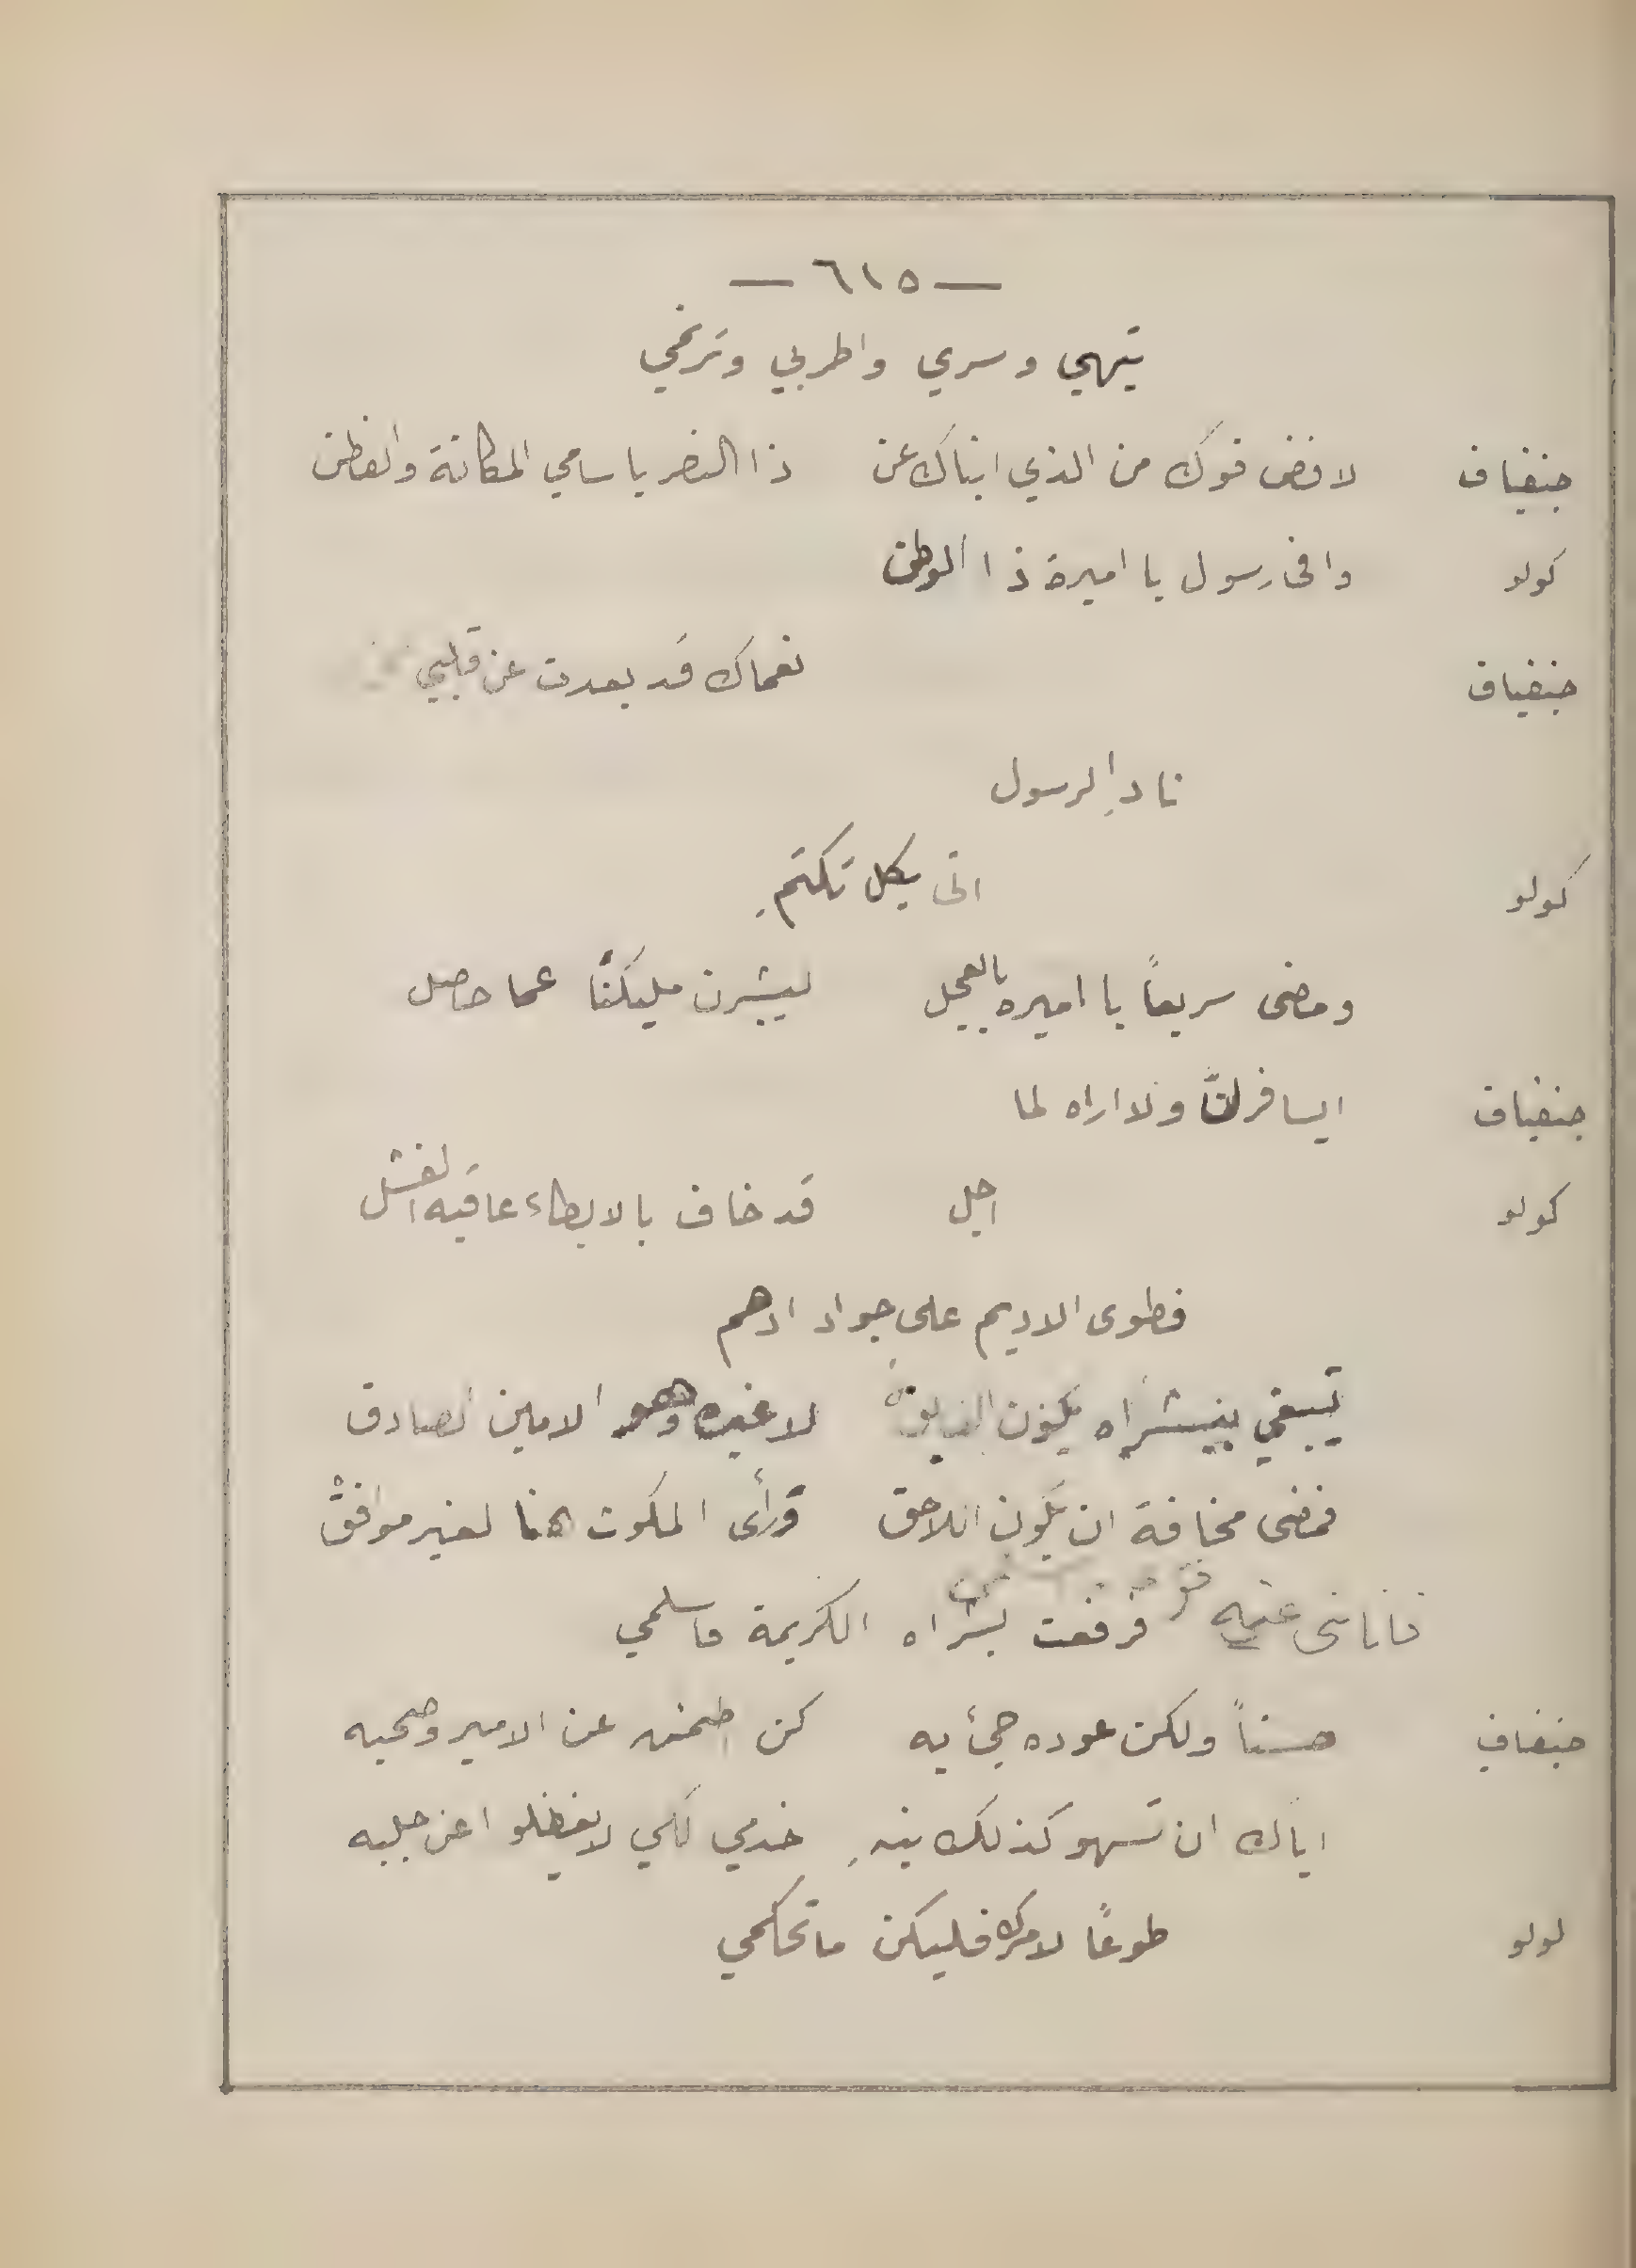 — ٦١٥ —
تيهي وسري واطربي وترنمي
جنفياف لا فض فوك من الذي انباك عن ذا النصر يا سامي المكانة والفطن
كولو وافى رسول يا اميرة ذا الوطن
جنفياف نعماك قد بعدت عن قلبي
نادِ الرسول
كولو اتى بكل تكتمِ
ومضى سريعاً يا اميره بالعجل ليبشرن مليكنا عما حصل
جنفياف ايسافرنَّ ولا اراه لما
كولو اجل قد خاف بالابطاء عاقبه الفشل
فطوى الاديم على جواد ادهم
يبغي ببشراه يكون لا غيره وهو الامين الصادق
فمضى مخافة ان يكون اللاحق ورأى المكوث هنا لغير موافق
فانا اتى عنه فرفعت بشراه الكريمة فاسلمي
جنفياف حسناً ولكن عوده جئ به كن اطمنه عن الامير وصحبه
اياك ان تسهو كذلك نبهِ خدمي لكي لا يغفلوا عن جلبه
لولو طوعاً لامرك فليكن ما تحكمي